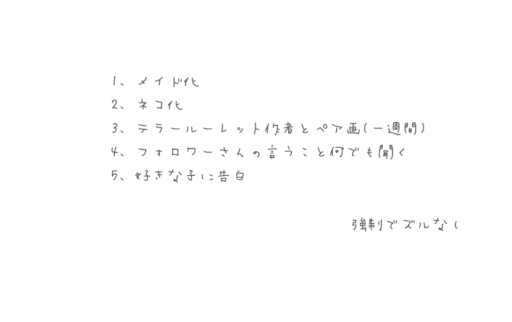 1、メイド化
2、ネコ化
3、テラールーレット作者とペア画(一週間)
4、フォロワーさんの言うこと何でも聞く
5、好きな子に告白
強制でズルなし